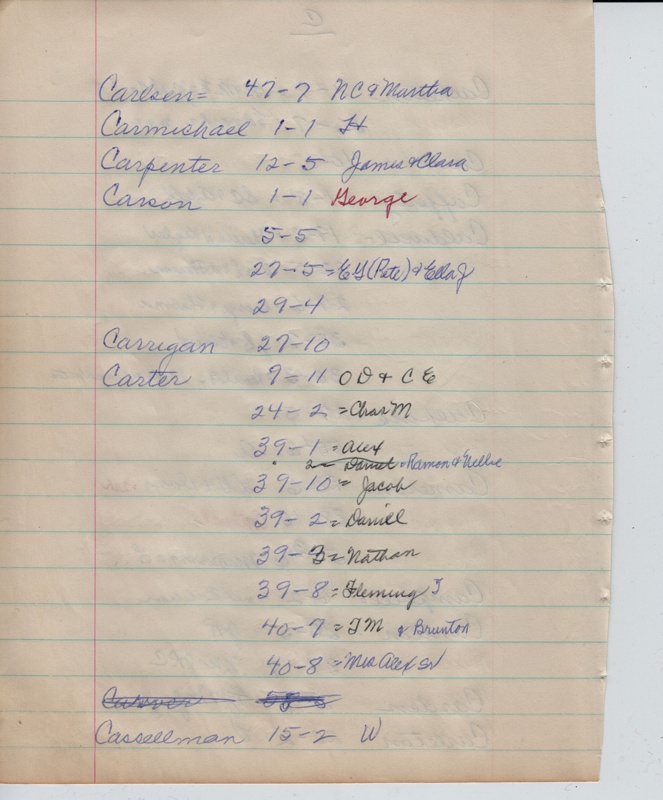 C
Carlsen = 47-7 NC & Martha
Carmichael 1-1 H
Carpenter 12-5 James & Clara
Carson 1-1 George
5-5
27-5 = EG (Pete) & Ella J
29-4
Carrigan 27-10
Carter 9=11 OD & CE
24-2 = Chas M
39-1 = Alex
" 2 = Daniel = Ramon & Nellie
39-10 = Jacob
39-2 = Daniel
39-3 = Nathan
39-8 = Fleming J
40-7 = JM & Brunton
40-8 = Mrs Alex Sr
Cassellman 15-2 W